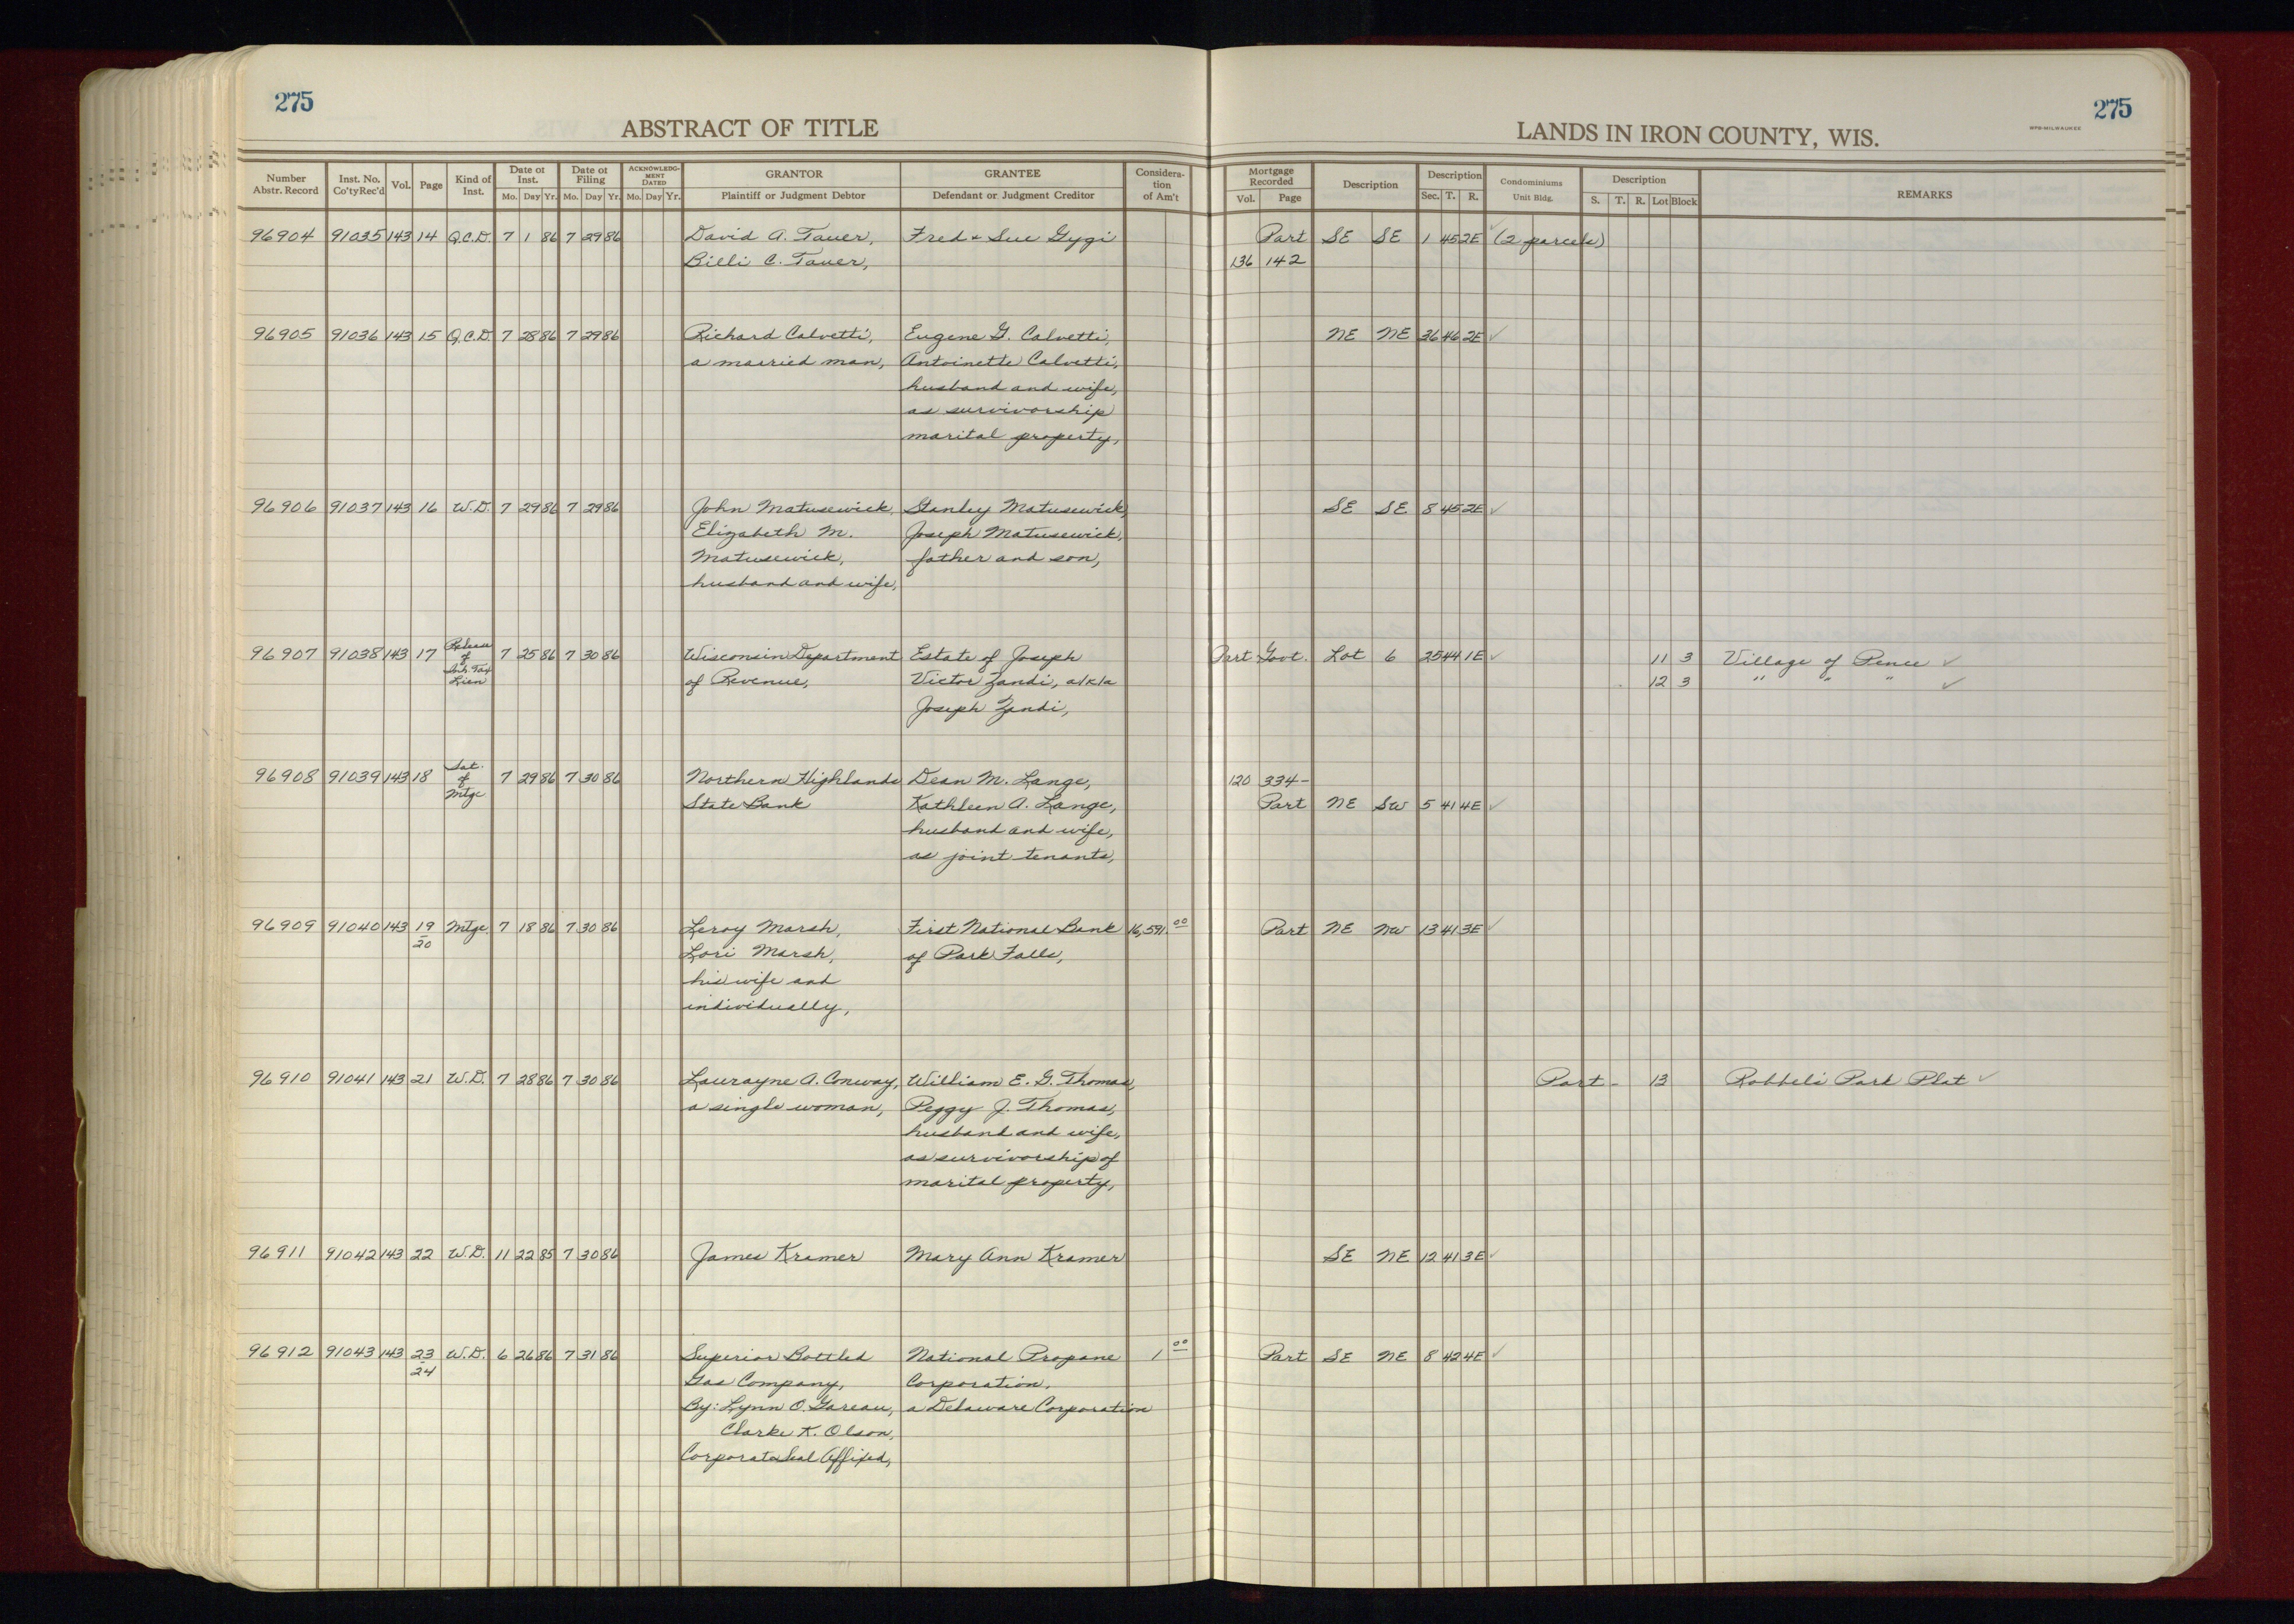 275
ABSTRACT OF TITLE
LANDS IN IRON COUNTY, WIS.
275
WPB-MILWAUKEE
Number Abstr. Record | Inst. No. Co'ty Rec'd | Vol. | Page | Kind of Inst. | Date of Inst. Mo. Day Yr. | Date of Filing Mo. Day Yr. | ACKNOWLEDGMENT DATED Mo. Day Yr. | GRANTOR Plaintiff or Judgment Debtor | GRANTEE Defendant or Judgment Creditor | Consideration of Am't | Mortgage Recorded Vol. Page | Description | Description Sec. T. R. | Condominiums Unit Bldg. | Description S. T. R. Lot Block | REMARKS
96904 91035 143 14 Q.C.D. 7 1 86 7 29 86 David A. Tauer, Fred & Sue Gygi Part SE SE 1 45 2E ✓ (2 parcels)
Billi C. Tauer, 136 142
96905 91036 143 15 Q.C.D. 7 28 86 7 29 86 Richard Calvetti, Eugene G. Calvetti, NE NE 36 46 2E ✓
a married man, Antoinette Calvetti,
husband and wife,
as survivorship
marital property,
96906 91037 143 16 W.D. 7 29 86 7 29 86 John Matusewick, Stanley Matusewick, SE SE 8 45 2E ✓
Elizabeth M. Joseph Matusewick,
Matusewick, father and son,
husband and wife,
96907 91038 143 17 Release of Inh. Tax Lien 7 25 86 7 30 86 Wisconsin Department Estate of Joseph Part Govt. Lot 6 25 44 1E ✓ 11 3 Village of Pence ✓
of Revenue, Victor Zandi, a/k/a 12 3 " " " ✓
Joseph Zandi,
96908 91039 143 18 Sat. of Mtge 7 29 86 7 30 86 Northern Highlands Dean M. Lange, 120 334-
State Bank Kathleen A. Lange, Part NE SW 5 41 4E ✓
husband and wife,
as joint tenants,
96909 91040 143 19/20 Mtge. 7 18 86 7 30 86 Leroy Marsh, First National Bank 16,591.00 Part NE NW 13 41 3E ✓
Lori Marsh, of Park Falls,
his wife and
individually,
96910 91041 143 21 W.D. 7 28 86 7 30 86 Laurayne A. Conway, William E. G. Thomas, Part - 13 Park Plat ✓
a single woman, Peggy J. Thomas,
husband and wife,
as survivorship of
marital property,
96911 91042 143 22 W.D. 11 22 85 7 30 86 James Kramer Mary Ann Kramer SE NE 12 41 3E ✓
96912 91043 143 23/24 W.D. 6 26 86 7 31 86 Superior Bottled National Propane 1 00 Part SE NE 8 42 4E ✓
Gas Company, Corporation,
By: Lynn O. Gareau, a Delaware Corporation
Clarke K. Olson,
Corporate Seal Affixed,